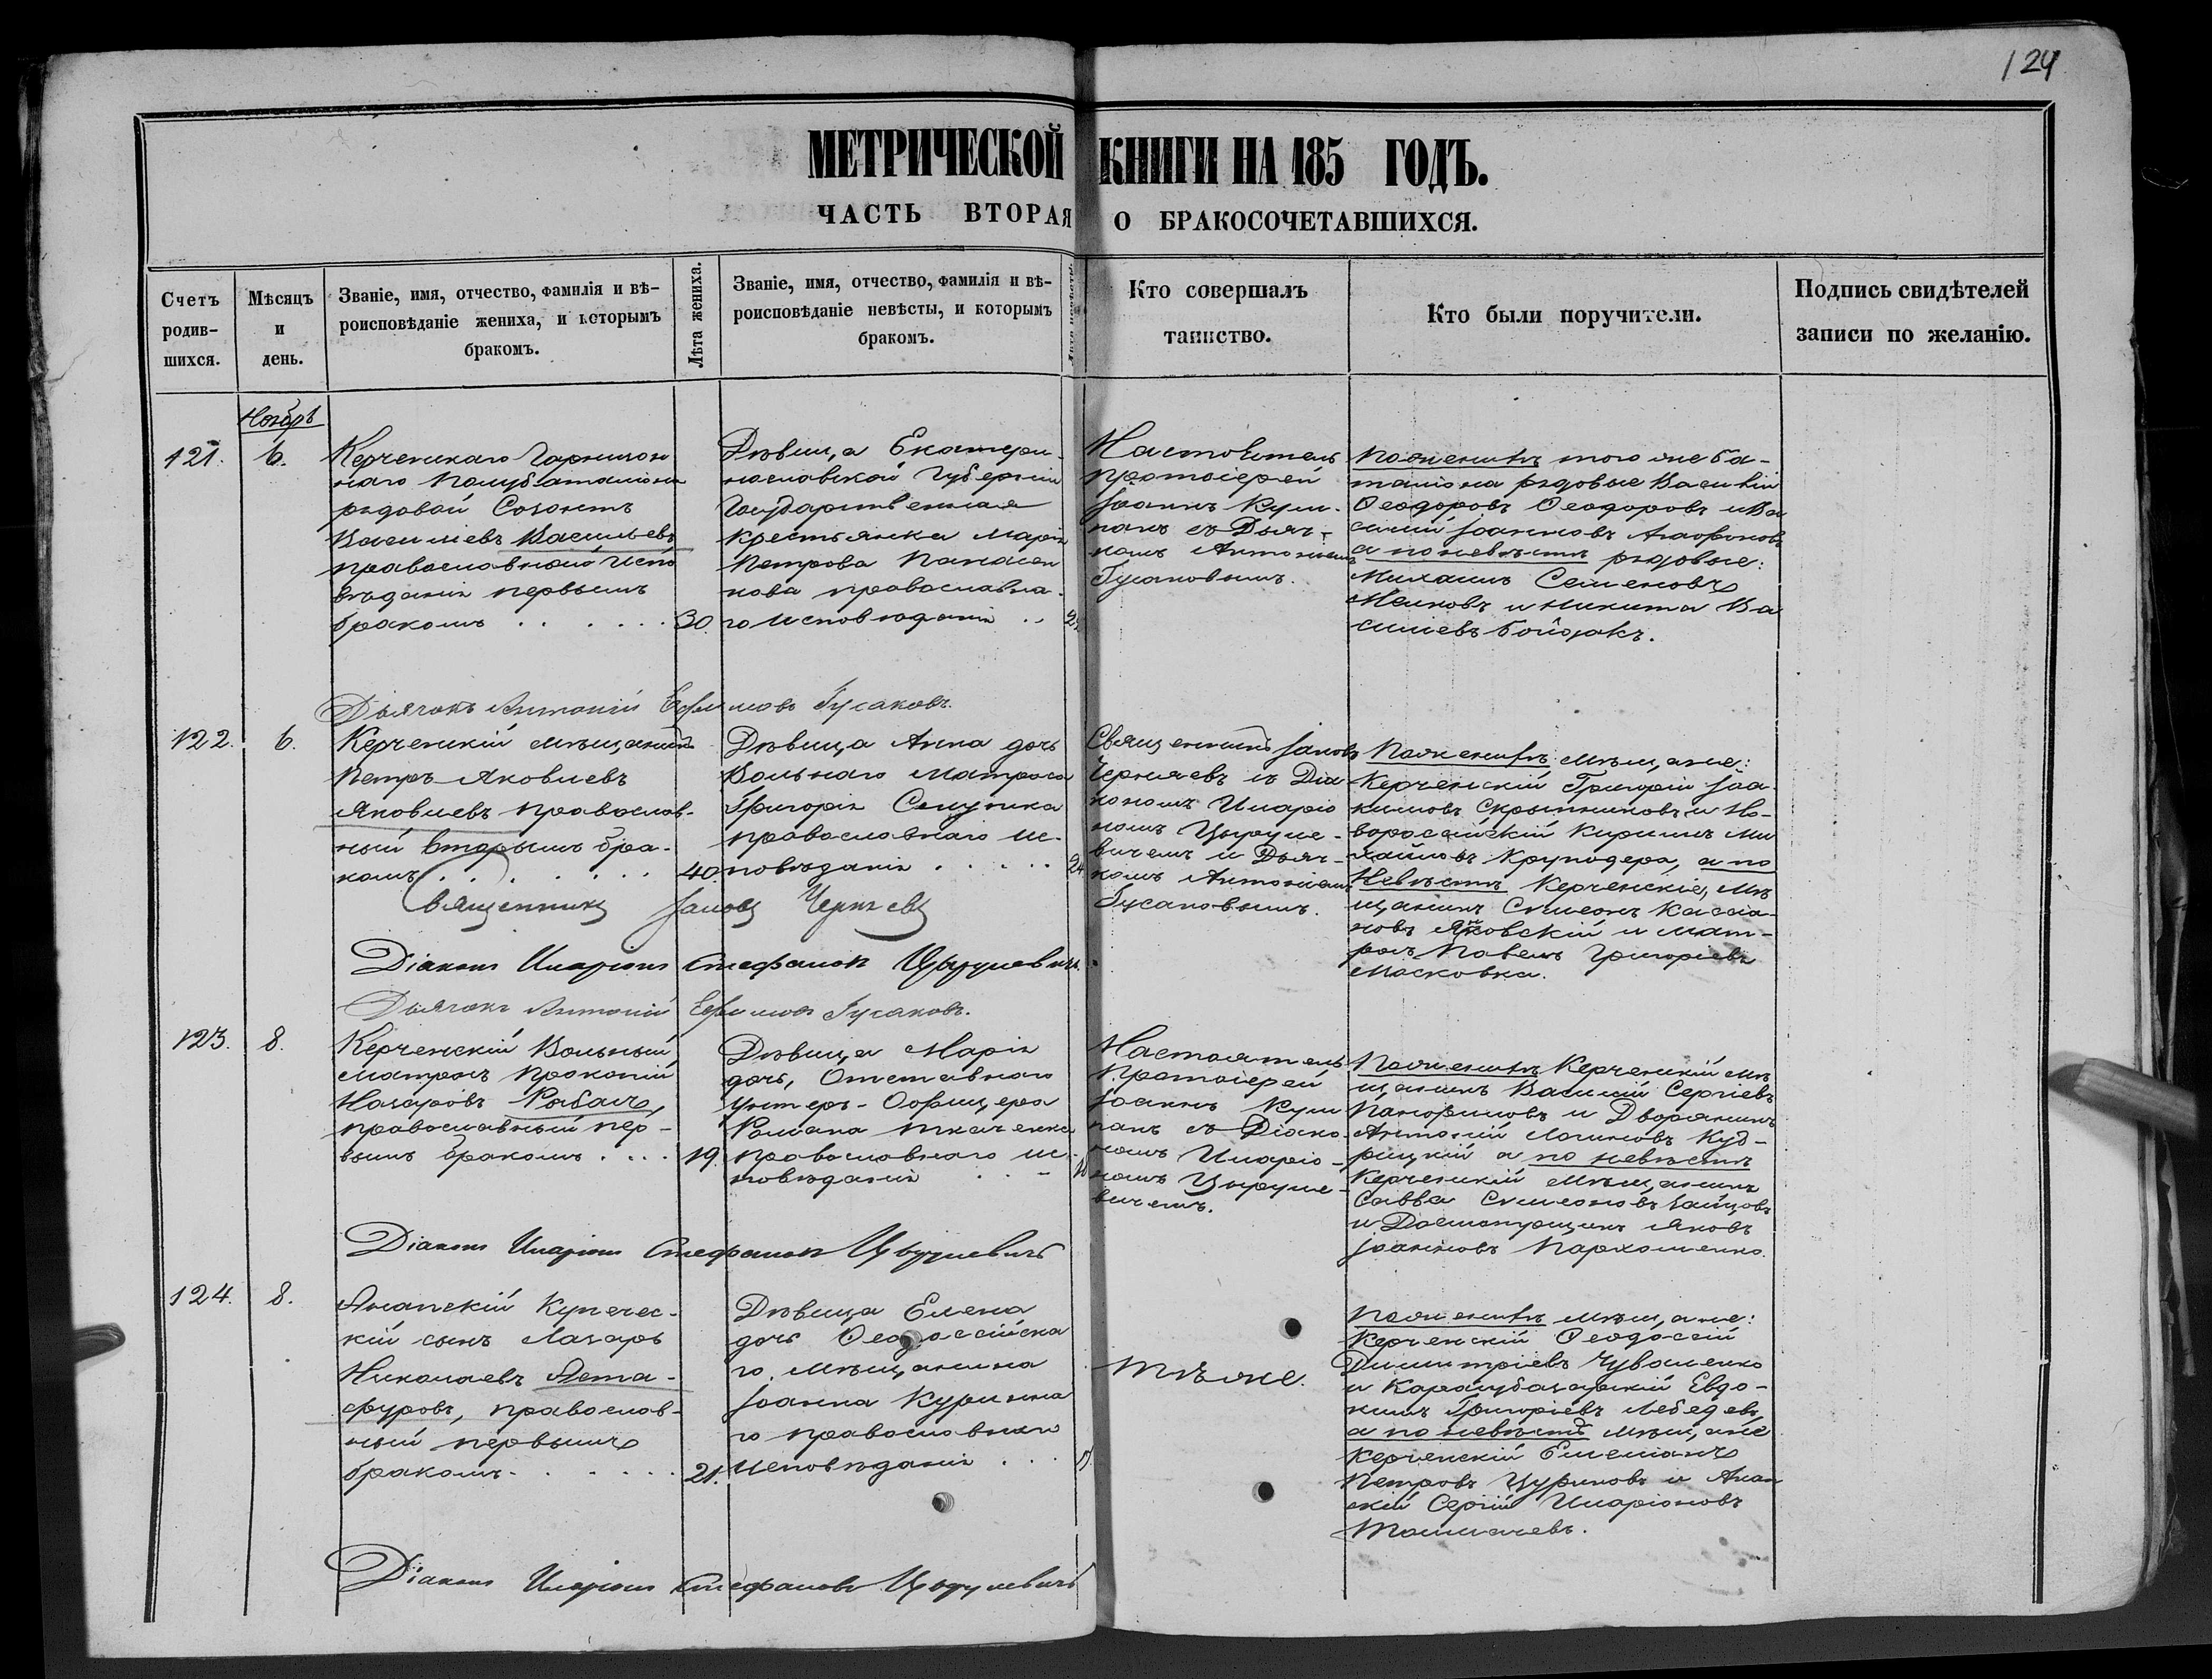 124
МЕТРИЧЕСКОЙ КНИГИ НА 185 ГОДЪ.
ЧАСТЬ ВТОРАЯ О БРАКОСОЧЕТАВШИХСЯ.
Счетъ
родив-
шихся.
Мѣсяцъ
и
день.
Званіе, имя, отчество, фамилія и вѣ-
роисповѣданіе жениха, и которымъ
бракомъ.
Лѣта жениха.
Званіе, имя, отчество, фамилія и вѣ-
роисповѣданіе невѣсты, и которымъ
бракомъ.
Кто совершалъ
таинство.
Кто были поручители.
Подпись свидѣтелей
записи по желанію.
Ноябрь
121.
6.
Керченскаго Гарнизон
наго Полубаталіона
рядовой Созонтъ
Васильевъ Васильевъ
православнаго испо
вѣданія первымъ
бракомъ . . . . . .
30.
Дѣвица Екатери-
нославской Губерніи
Государственная
крестьянка Марія
Петрова Панасен
кова православна-
го исповѣданія . .
Настоятель
протоіерей
Іоаннъ Кум-
панъ съ Дьяч-
комъ Антоніемъ
Гусаковымъ.
По женихѣ того же ба-
таліона рядовые Василій
Ѳеодоровъ Ѳеодоровъ и Ва
силій Іоанновъ Агафоновъ
а по невѣстѣ рядовые:
Михаилъ Семеновъ
и Никита Ва
силіевъ
Дьячокъ Антоній Ефимовъ Гусаковъ.
122.
6.
Керченскій мѣщанинъ
Петръ Яковлевъ
Яковлевъ православ-
ный вторымъ бра-
комъ . . . . . . .
40.
Дѣвица Анна дочь
Вольнаго Матроса
Григорія
православнаго ис-
повѣданія . . . . .
24
Священникъ Іаковъ
Черняевъ съ Діа-
кономъ Иларіо
номъ Цыруле-
вичемъ и Дьяч-
комъ Антоніемъ
Гусаковымъ.
По женихѣ мѣщане:
Керченскій Григорій Іоа
кимовъ Скрынниковъ и Но-
вороссійскій Кириллъ Ми
хайловъ Круподера, а по
Невѣстѣ Керченскіе, мѣ
щанинъ Симеонъ Кассіа-
новъ и мат-
росъ Павелъ Григоріевъ
Московка.
Священникъ Іаковъ Черняевъ
Діаконъ Иларіонъ Стефановъ Цырулевичъ.
Дьячокъ Антоній Ефимовъ Гусаковъ.
123.
8.
Керченскій Вольный
Матросъ Прокопій
Назаровъ Рябачъ,
православный пер-
вымъ бракомъ . . . .
19.
Дѣвица Марія
дочь, Отставнаго
Унтеръ-Офицера
Романа Ткаченка
православнаго ис-
повѣданія . . -
Настоятель
Протоіерей
Іоаннъ Кум
панъ съ Діако-
номъ Иларіо-
номъ Цыруле-
вичемъ.
По женихѣ Керченскій мѣ
щанинъ Василій Сергіевъ
Панфиловъ и Дворянинъ
Антоній Логиновъ Куд-
рицкій а по невѣстѣ
Керченскій мѣщанинъ
Савва Симеоновъ Зайцовъ
и Яковъ
Іоанновъ Пархоменко.
Діаконъ Иларіонъ Стефановъ Цырулевичъ
124.
8.
Анапскій Купечес-
кій сынъ Лазарь
Николаевъ Аста-
фуровъ, православ-
ный первымъ
бракомъ . . . . . .
21.
Дѣвица Елена
дочь Ѳеодосійска
го мѣщанина
Іоанна
го православнаго
исповѣданія . . .
Тѣ же.
По женихѣ мѣщане:
Керченскій Ѳеодосій
Димитріевъ Чуваленко
и Карасубазарскій Евдо-
кимъ Григоріевъ Лебедевъ,
а по невѣстѣ мѣщане
Керченскій Емеліанъ
Петровъ Цуриковъ и Анап
скій Сергій Иларіоновъ
Толмачевъ.
Діаконъ Иларіонъ Стефановъ Цырулевичъ